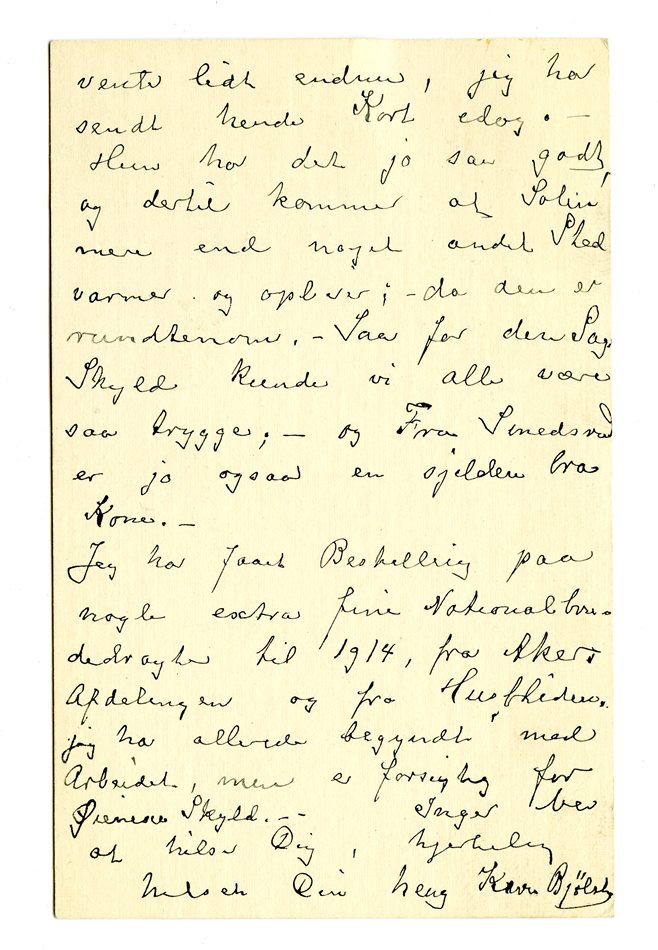 vente lidt endnu, jeg har
sendt hende Kort idag. —
Hun har det jo saa godt,
og dertil kommer at Solen
mere end noget andet Sted
varmer og opliver; - da den er
rundtenom. - Saa for den Sags
Skyld kunde vi alle være
saa trygge; — og Fru Smedsrud
er jo ogsaa en sjelden bra
Kone. —
Jeg har faaet Bestilling paa
nogle extra fine Nationalbru-
dedragter til 1914, fra Akers
Afdelingen og fra Husfliden.
jeg har allerede begyndt med
Arbeidet, men er forsigtig for
Øienene Skyld. -- Inger ber
at hilse Dig, hjertelig
hilsen Din heng. Kari Bjølst